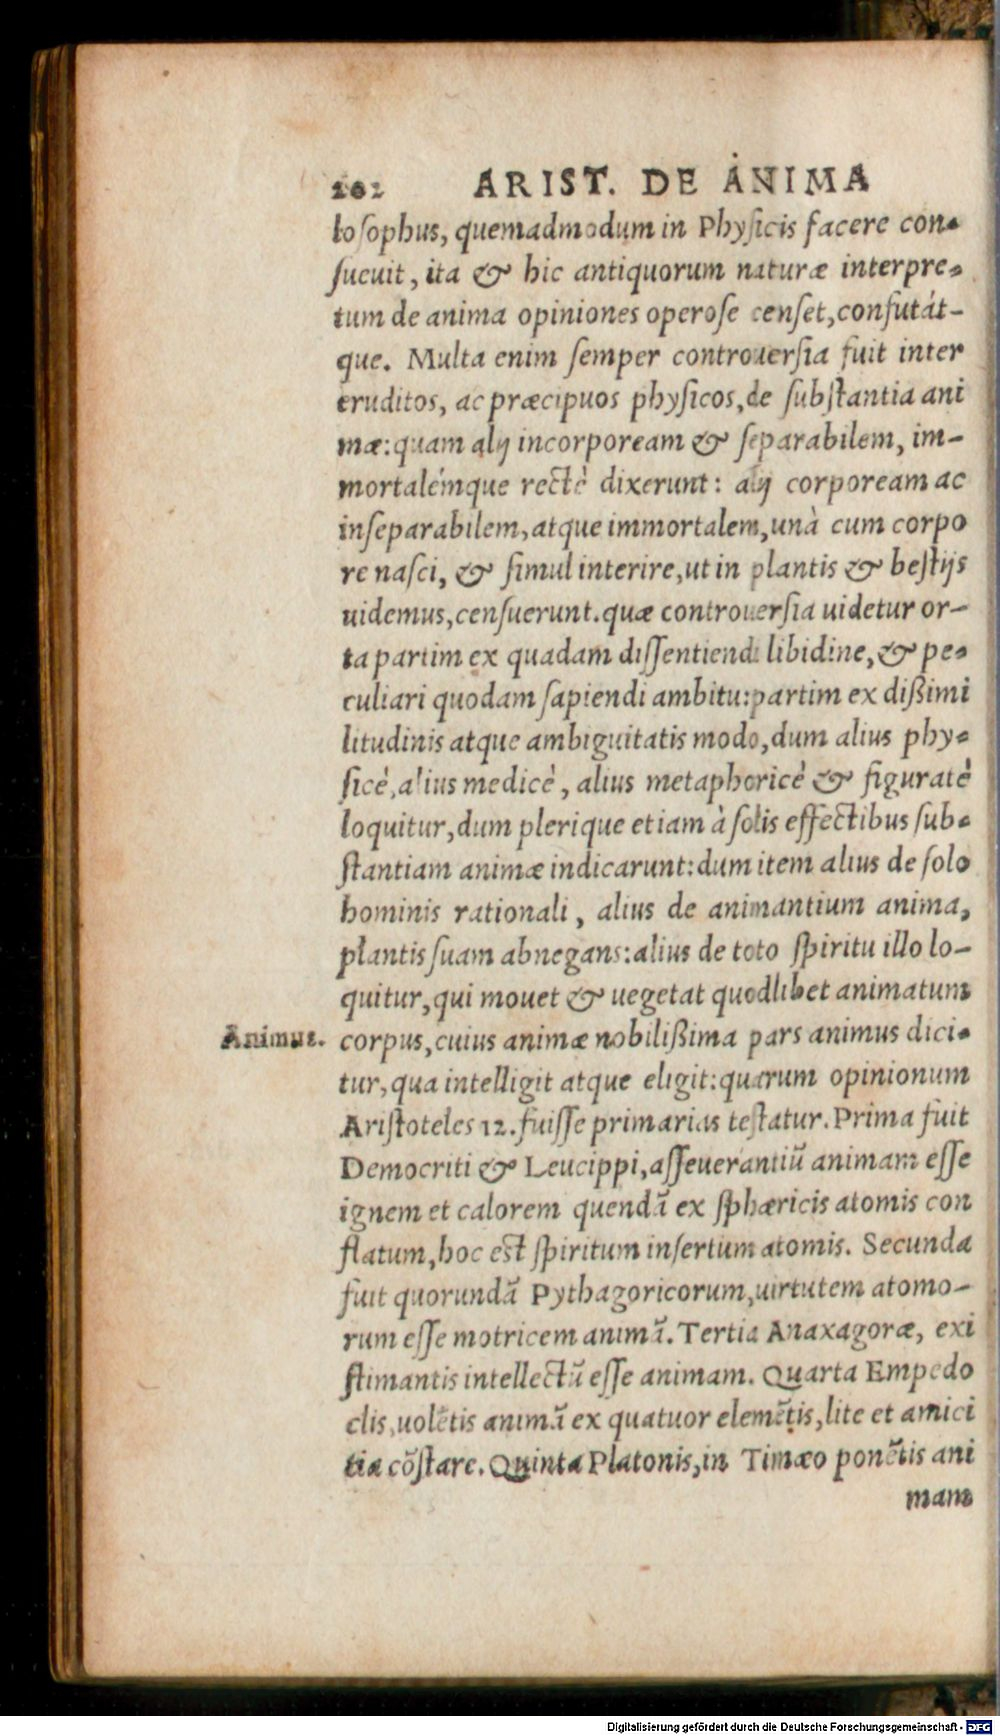 202 ARIST. DE ANIMA
losophus, quemadmodum in Physicis facere con-
sueuit, ita & hic antiquorum naturæ interpre-
tum de anima opiniones operose censet, confutát-
que. Multa enim semper controuersia fuit inter
eruditos, ac præcipuos physicos, de substantia ani
mæ: quam alij incorpoream & separabilem, im-
mortalémque rectè dixerunt: alij corpoream ac
inseparabilem, atque immortalem, unà cum corpo
re nasci, & simul interire, ut in plantis & bestijs
uidemus, censuerunt. quæ controuersia uidetur or-
ta partim ex quadam dissentiendi libidine, & pe-
culiari quodam sapiendi ambitu: partim ex dißimi
litudinis atque ambiguitatis modo, dum alius phy-
sicè, alius medicè, alius metaphoricè & figuratè
loquitur, dum plerique etiam à solis effectibus sub-
stantiam animæ indicarunt: dum item alius de solo
hominis rationali, alius de animantium anima,
plantis suam abnegans: alius de toto spiritu illo lo-
quitur, qui mouet & uegetat quodlibet animatum
Animus.
corpus, cuius animæ nobilißima pars animus dici-
tur, qua intelligit atque eligit: quarum opinionum
Aristoteles 12. fuisse primarias testatur. Prima fuit
Democriti & Leucippi, asseuerantiũ animam esse
ignem et calorem quendã ex sphæricis atomis con
flatum, hoc est spiritum insertum atomis. Secunda
fuit quorundã Pythagoricorum, uirtutem atomo-
rum esse motricem animã. Tertia Anaxagoræ, exi
stimantis intellectũ esse animam. Quarta Empedo
clis, uolẽtis animã ex quatuor elemẽtis, lite et amici
tia cõstare. Quinta Platonis, in Timæo ponẽtis ani
mam
Digitalisierung gefördert durch die Deutsche Forschungsgemeinschaft - DFG